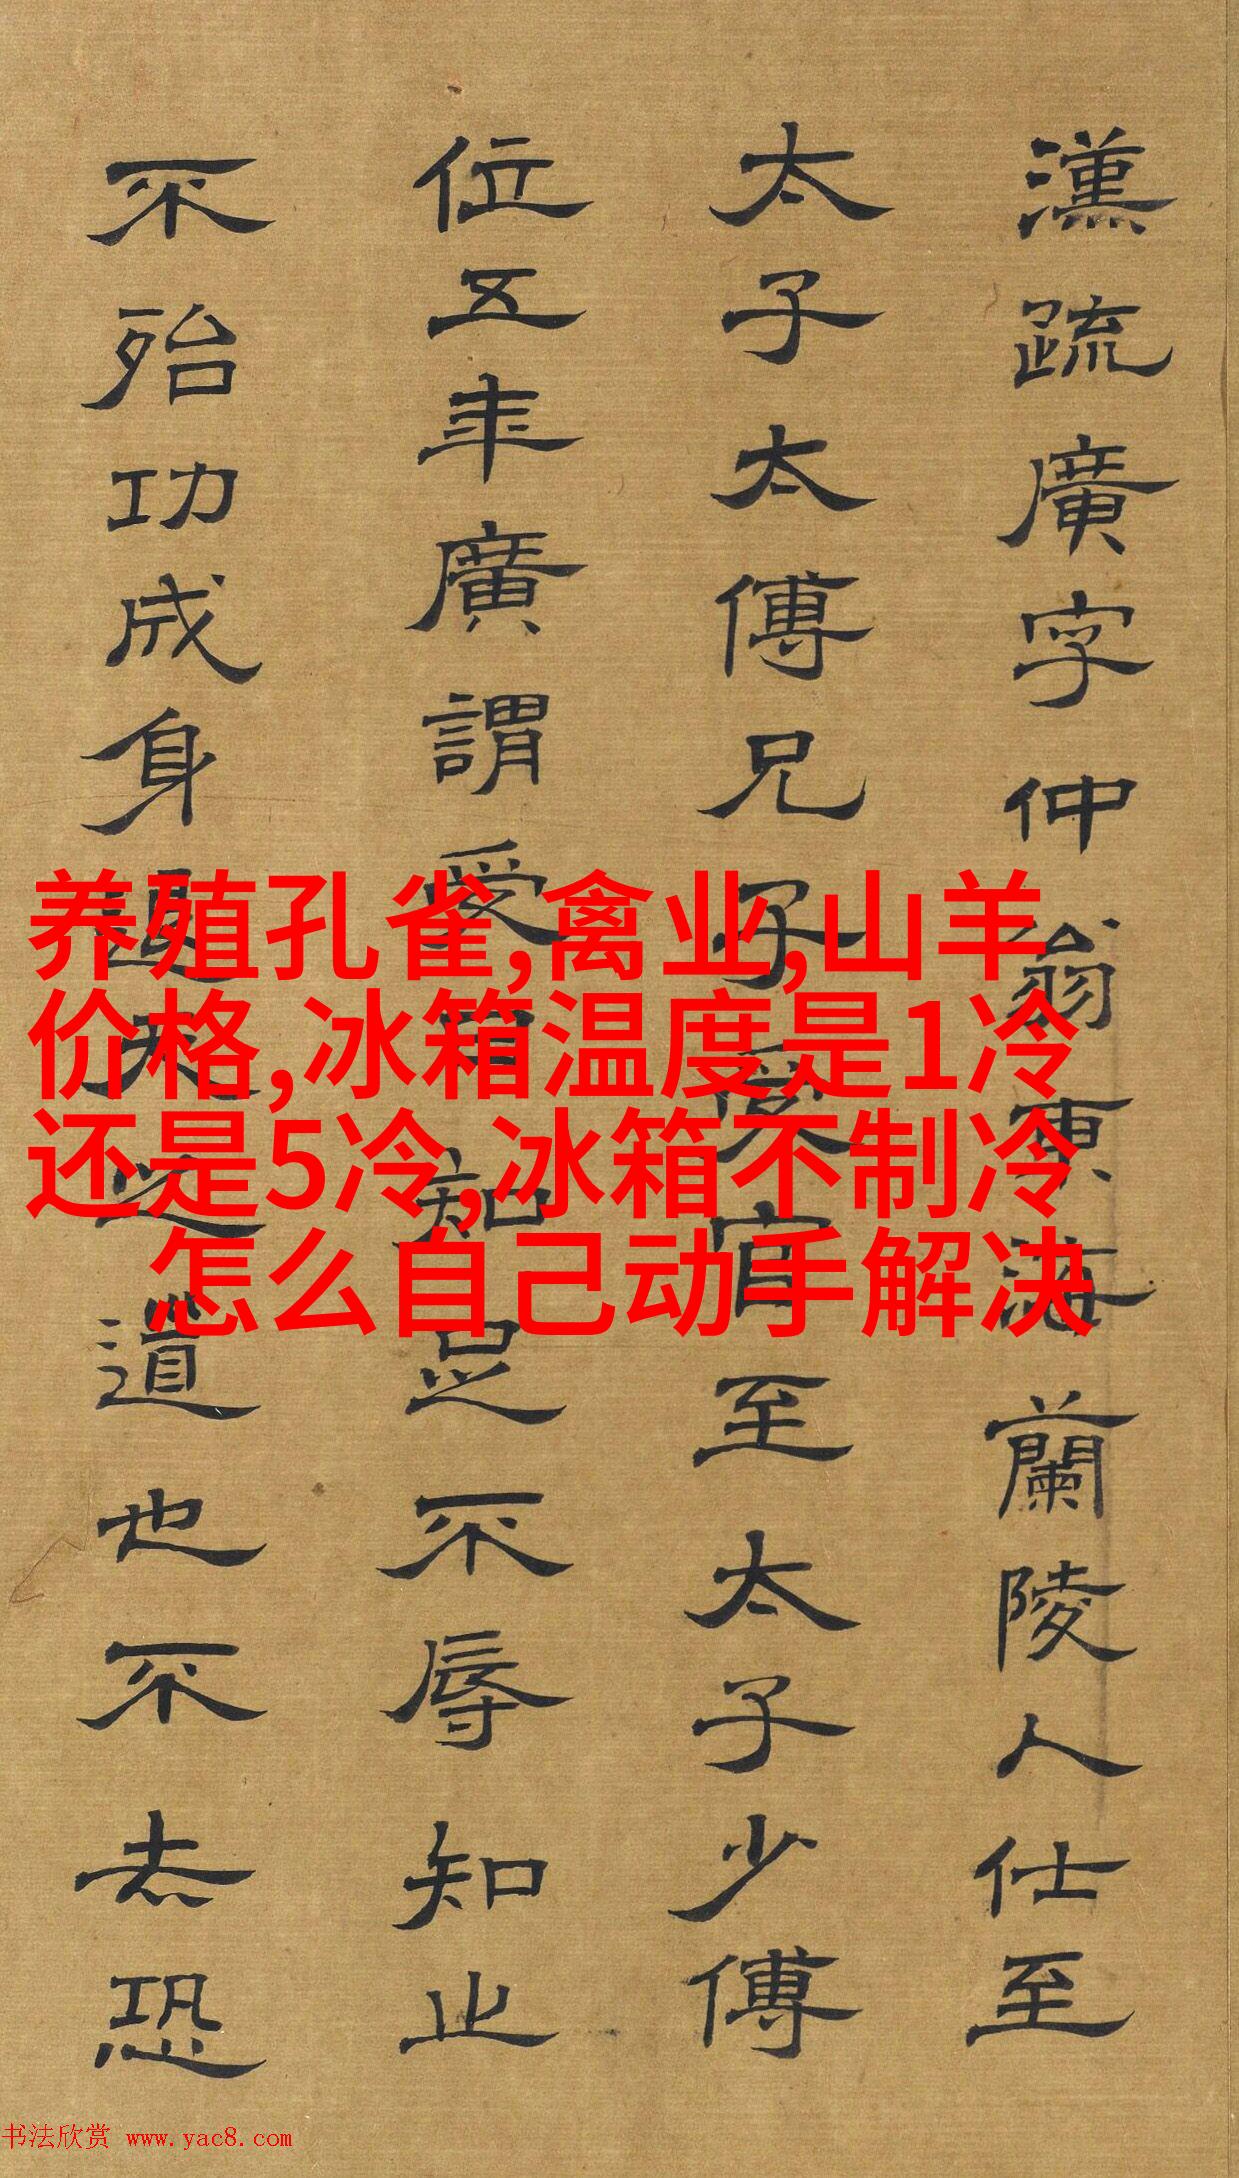 漢疏廣字仲翁東海蘭陵人仕至
太子太傅兄子受官至太子少傅
位五年廣謂受曰知足不辱知止
不殆功成身退天之道也不去恐
养殖孔雀,禽业,山羊
价格,冰箱温度是1冷
还是5冷,冰箱不制冷
怎么自己动手解决
书法欣赏 www.yac8.com